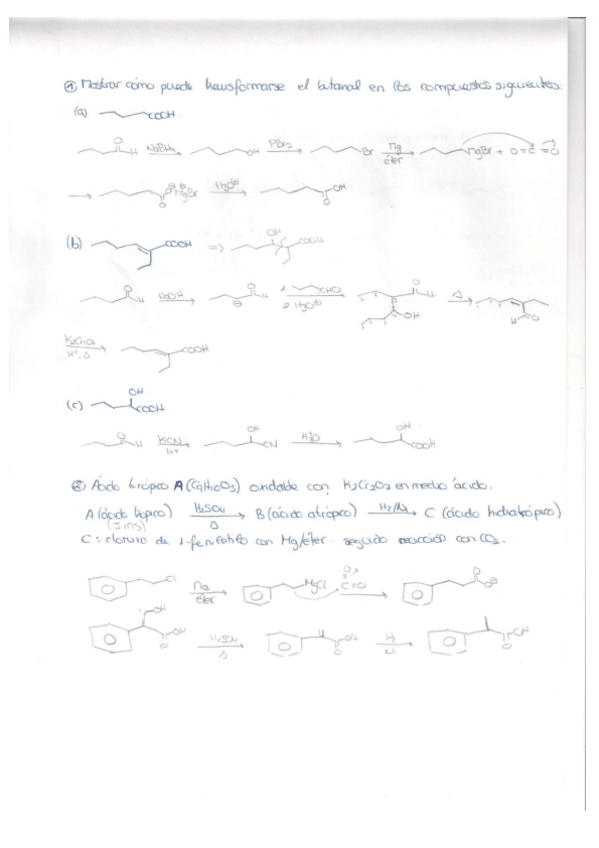 ① Mostrar cómo puede transformarse el butanal en los compuestos siguientes:
(a) COOH
O H NaBH4 OH PBr3 Br Mg éter MgBr + O=C=O
O⊖ ⊕MgBr O H3O⊕ OH O
(b) COOH => OH COOH
O H NaOH O H ⊖ 1. CHO 2. H3O⊕ O H OH Δ H O
K2CrO4 H+, Δ COOH
(c) OH COOH
O H KCN H+ OH CN H3O OH COOH
② Ácido trópico A (C9H10O3) oxidable con K2Cr2O7 en medio ácido.
A (ácido trópico) H2SO4 Δ B (ácido atrópico) H2/Ni C (ácido hidratrópico)
C: cloruro de 1-feniletilo con Mg/éter seguido reacción con CO2.
Cl Mg éter MgCl O C=O O O⊖
OH OH O H2SO4 Δ OH O H2 Ni OH O